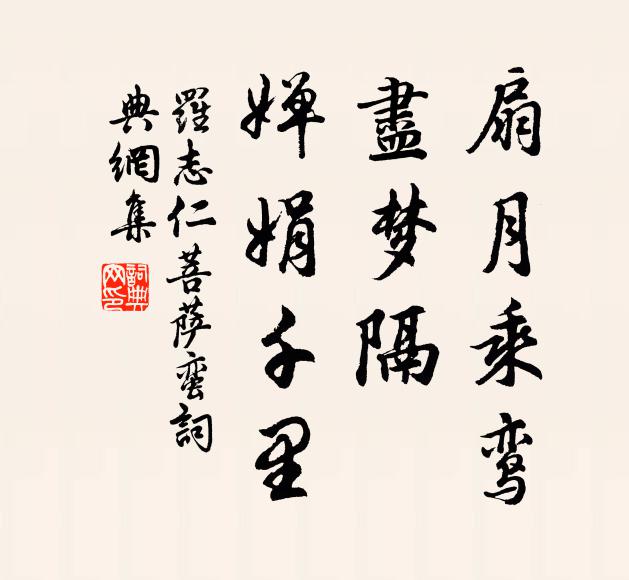 扇月乘鸾
盡梦隔
婵娟千里
羅志仁菩萨蛮詞
典網集
詞典网印